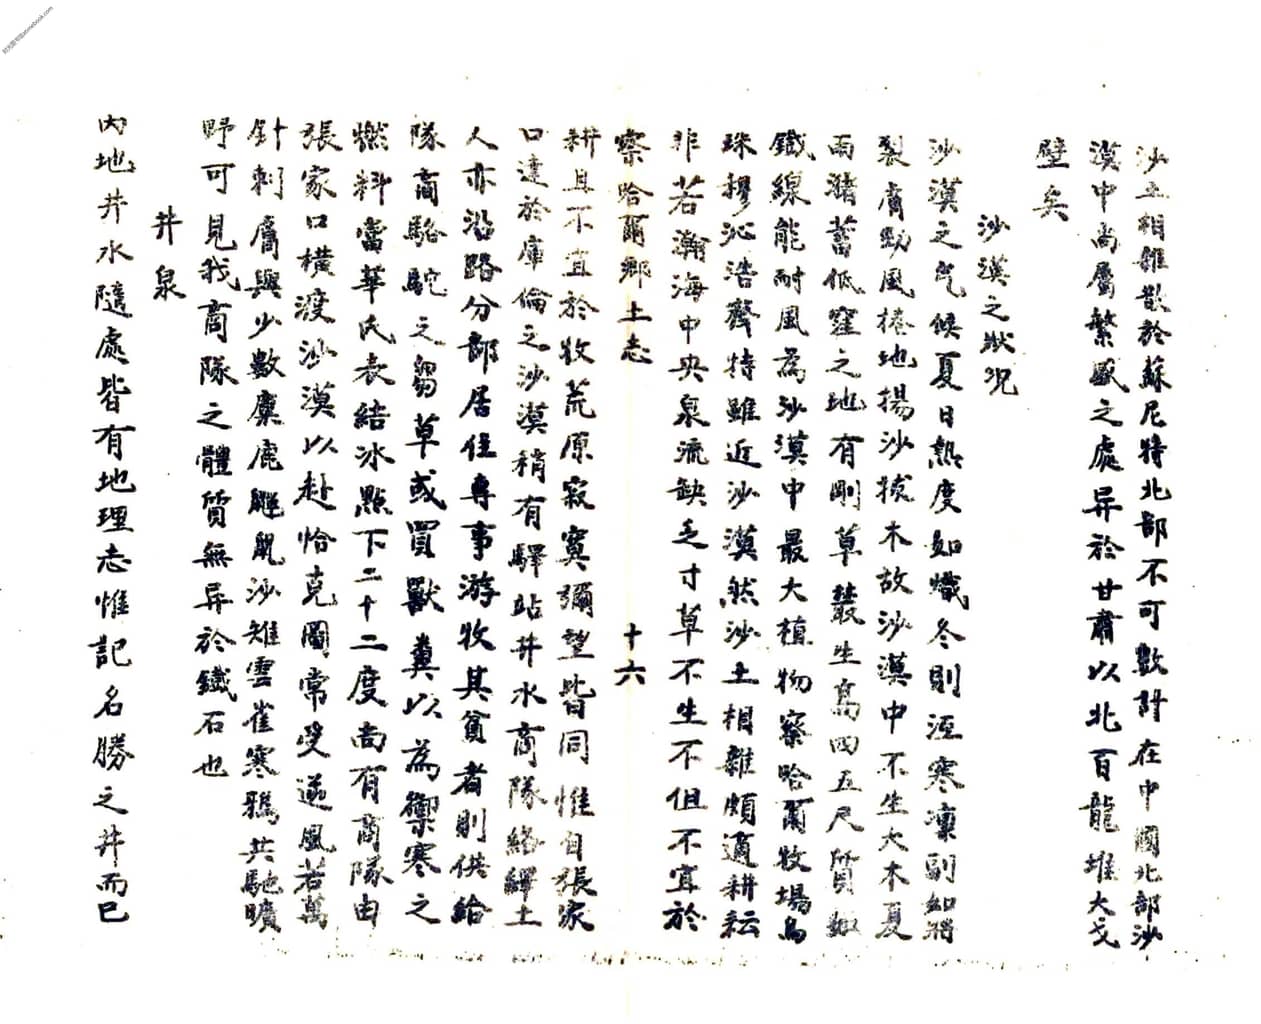 沙土相雜散於蘇尼特北部不可數計在中國北部沙
漠中尚屬繁盛之處异於甘肅以北百龍堆大戈
壁矣
沙漠之狀況
沙漠之气候夏日熱度如熾冬則沍寒凜冽如將
裂膚勁風捲地揚沙拔木故沙漠中不生大木夏
雨瀦蓄低窪之地有剛草叢生高四五尺質如
鐵線能耐風為沙漠中最大植物察哈爾牧場烏
珠穆沁浩齊特雖近沙漠然沙土相雜頗適耕耘
非若瀚海中央泉流缺乏寸草不生不但不宜於
察哈爾鄉土志 十六
耕且不宜於牧荒原寂寞彌望皆同惟自張家
口達於庫倫之沙漠稍有驛站井水商隊絡繹土
人亦沿路分部居住專事游牧其貧者則供給
隊商駱駝之芻草或買獸糞以為禦寒之
燃料當華氏表結冰點下二十二度尚有商隊由
張家口橫渡沙漠以赴恰克圖常受逆風若萬
針刺膚與少數麋鹿鼴鼠沙雉雲雀寒鴉共馳曠
野可見我商隊之體質無异於鐵石也
井泉
內地井水隨處皆有地理志惟記名勝之井而已